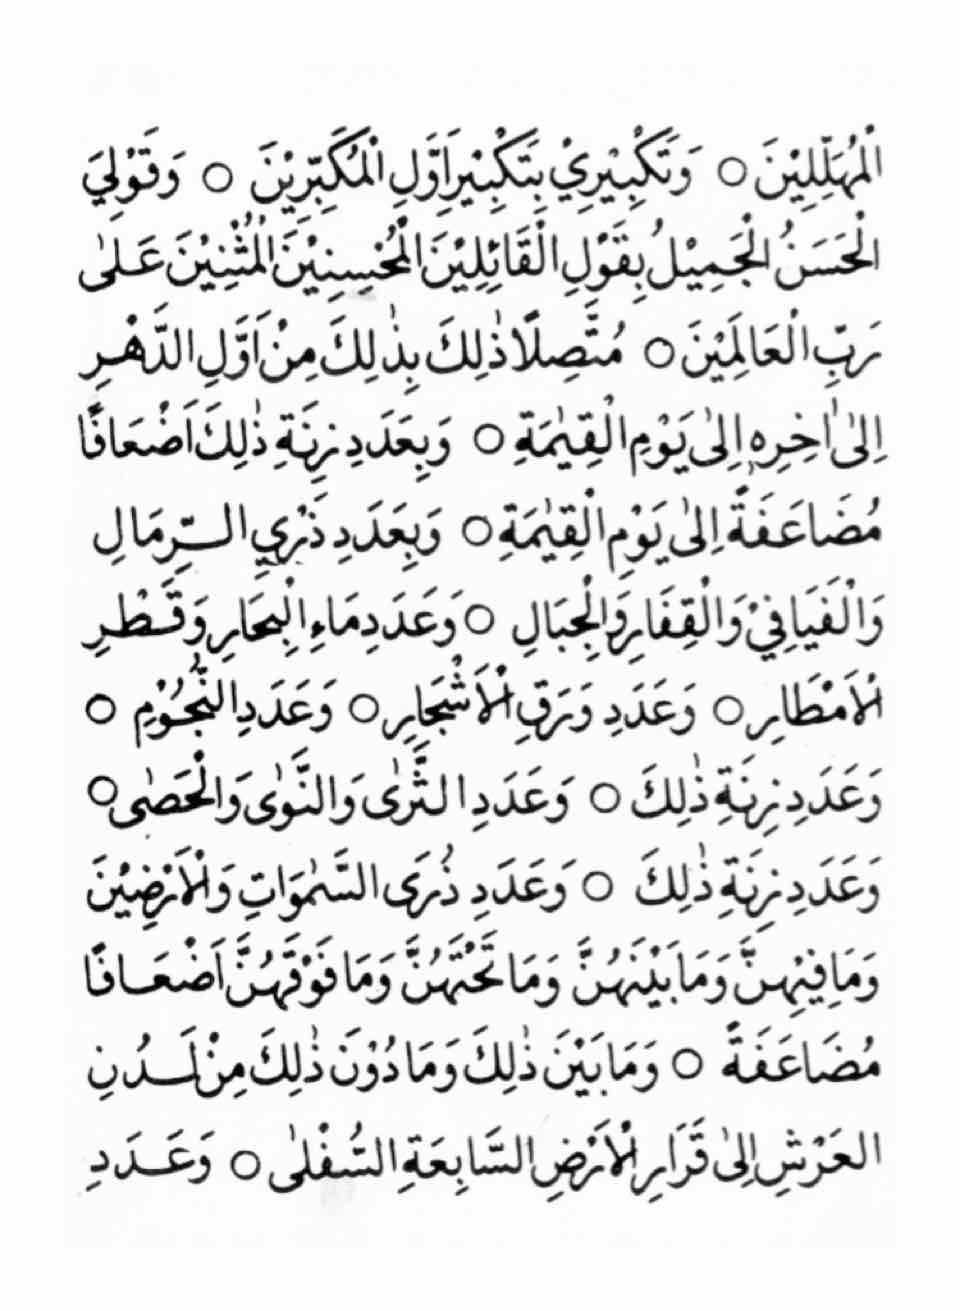 الْمُهَلِّلِيْنَ ○ وَتَكْبِيْرِيْ بِتَكْبِيْرِاَوَّلِ الْمُكَبِّرِيْنَ ○ وَقَوْلِيَ
الْحَسَنُ الْجَمِيْلُ بِقَوْلِ الْقَائِلِيْنَ الْمُحْسِنِيْنَ الْمُثْنِيْنَ عَلٰى
رَبِّ الْعَالَمِيْنَ ○ مُتَّصِلًا ذٰلِكَ بِذٰلِكَ مِنْ اَوَّلِ الدَّهْرِ
اِلٰى اٰخِرِهٖ اِلٰى يَوْمِ الْقِيٰمَةِ ○ وَبِعَدَدِ زِنَةِ ذٰلِكَ اَضْعَافًا
مُضَاعَفَةً اِلٰى يَوْمِ الْقِيٰمَةِ ○ وَبِعَدَدِ ذَرْيِ الرِّمَالِ
وَالْفَيَافِيْ وَالْقِفَارِ وَالْجِبَالِ ○ وَعَدَدِ مَاءِ الْبِحَارِ وَقَطْرِ
الْاَمْطَارِ ○ وَعَدَدِ وَرَقِ الْاَشْجَارِ ○ وَعَدَدِ النُّجُوْمِ ○
وَعَدَدِ زِنَةِ ذٰلِكَ ○ وَعَدَدِ الثَّرٰى وَالنَّوٰى وَالْحَصٰى ○
وَعَدَدِ زِنَةِ ذٰلِكَ ○ وَعَدَدِ ذُرَى السَّمٰوَاتِ وَالْاَرْضِيْنَ
وَمَا فِيْهِنَّ وَمَا بَيْنَهُنَّ وَمَا تَحْتَهُنَّ وَمَا فَوْقَهُنَّ اَضْعَافًا
مُضَاعَفَةً ○ وَمَا بَيْنَ ذٰلِكَ وَمَا دُوْنَ ذٰلِكَ مِنْ لَدُنِ
الْعَرْشِ اِلٰى قَرَارِ الْاَرْضِ السَّابِعَةِ السُّفْلٰى ○ وَعَدَدِ